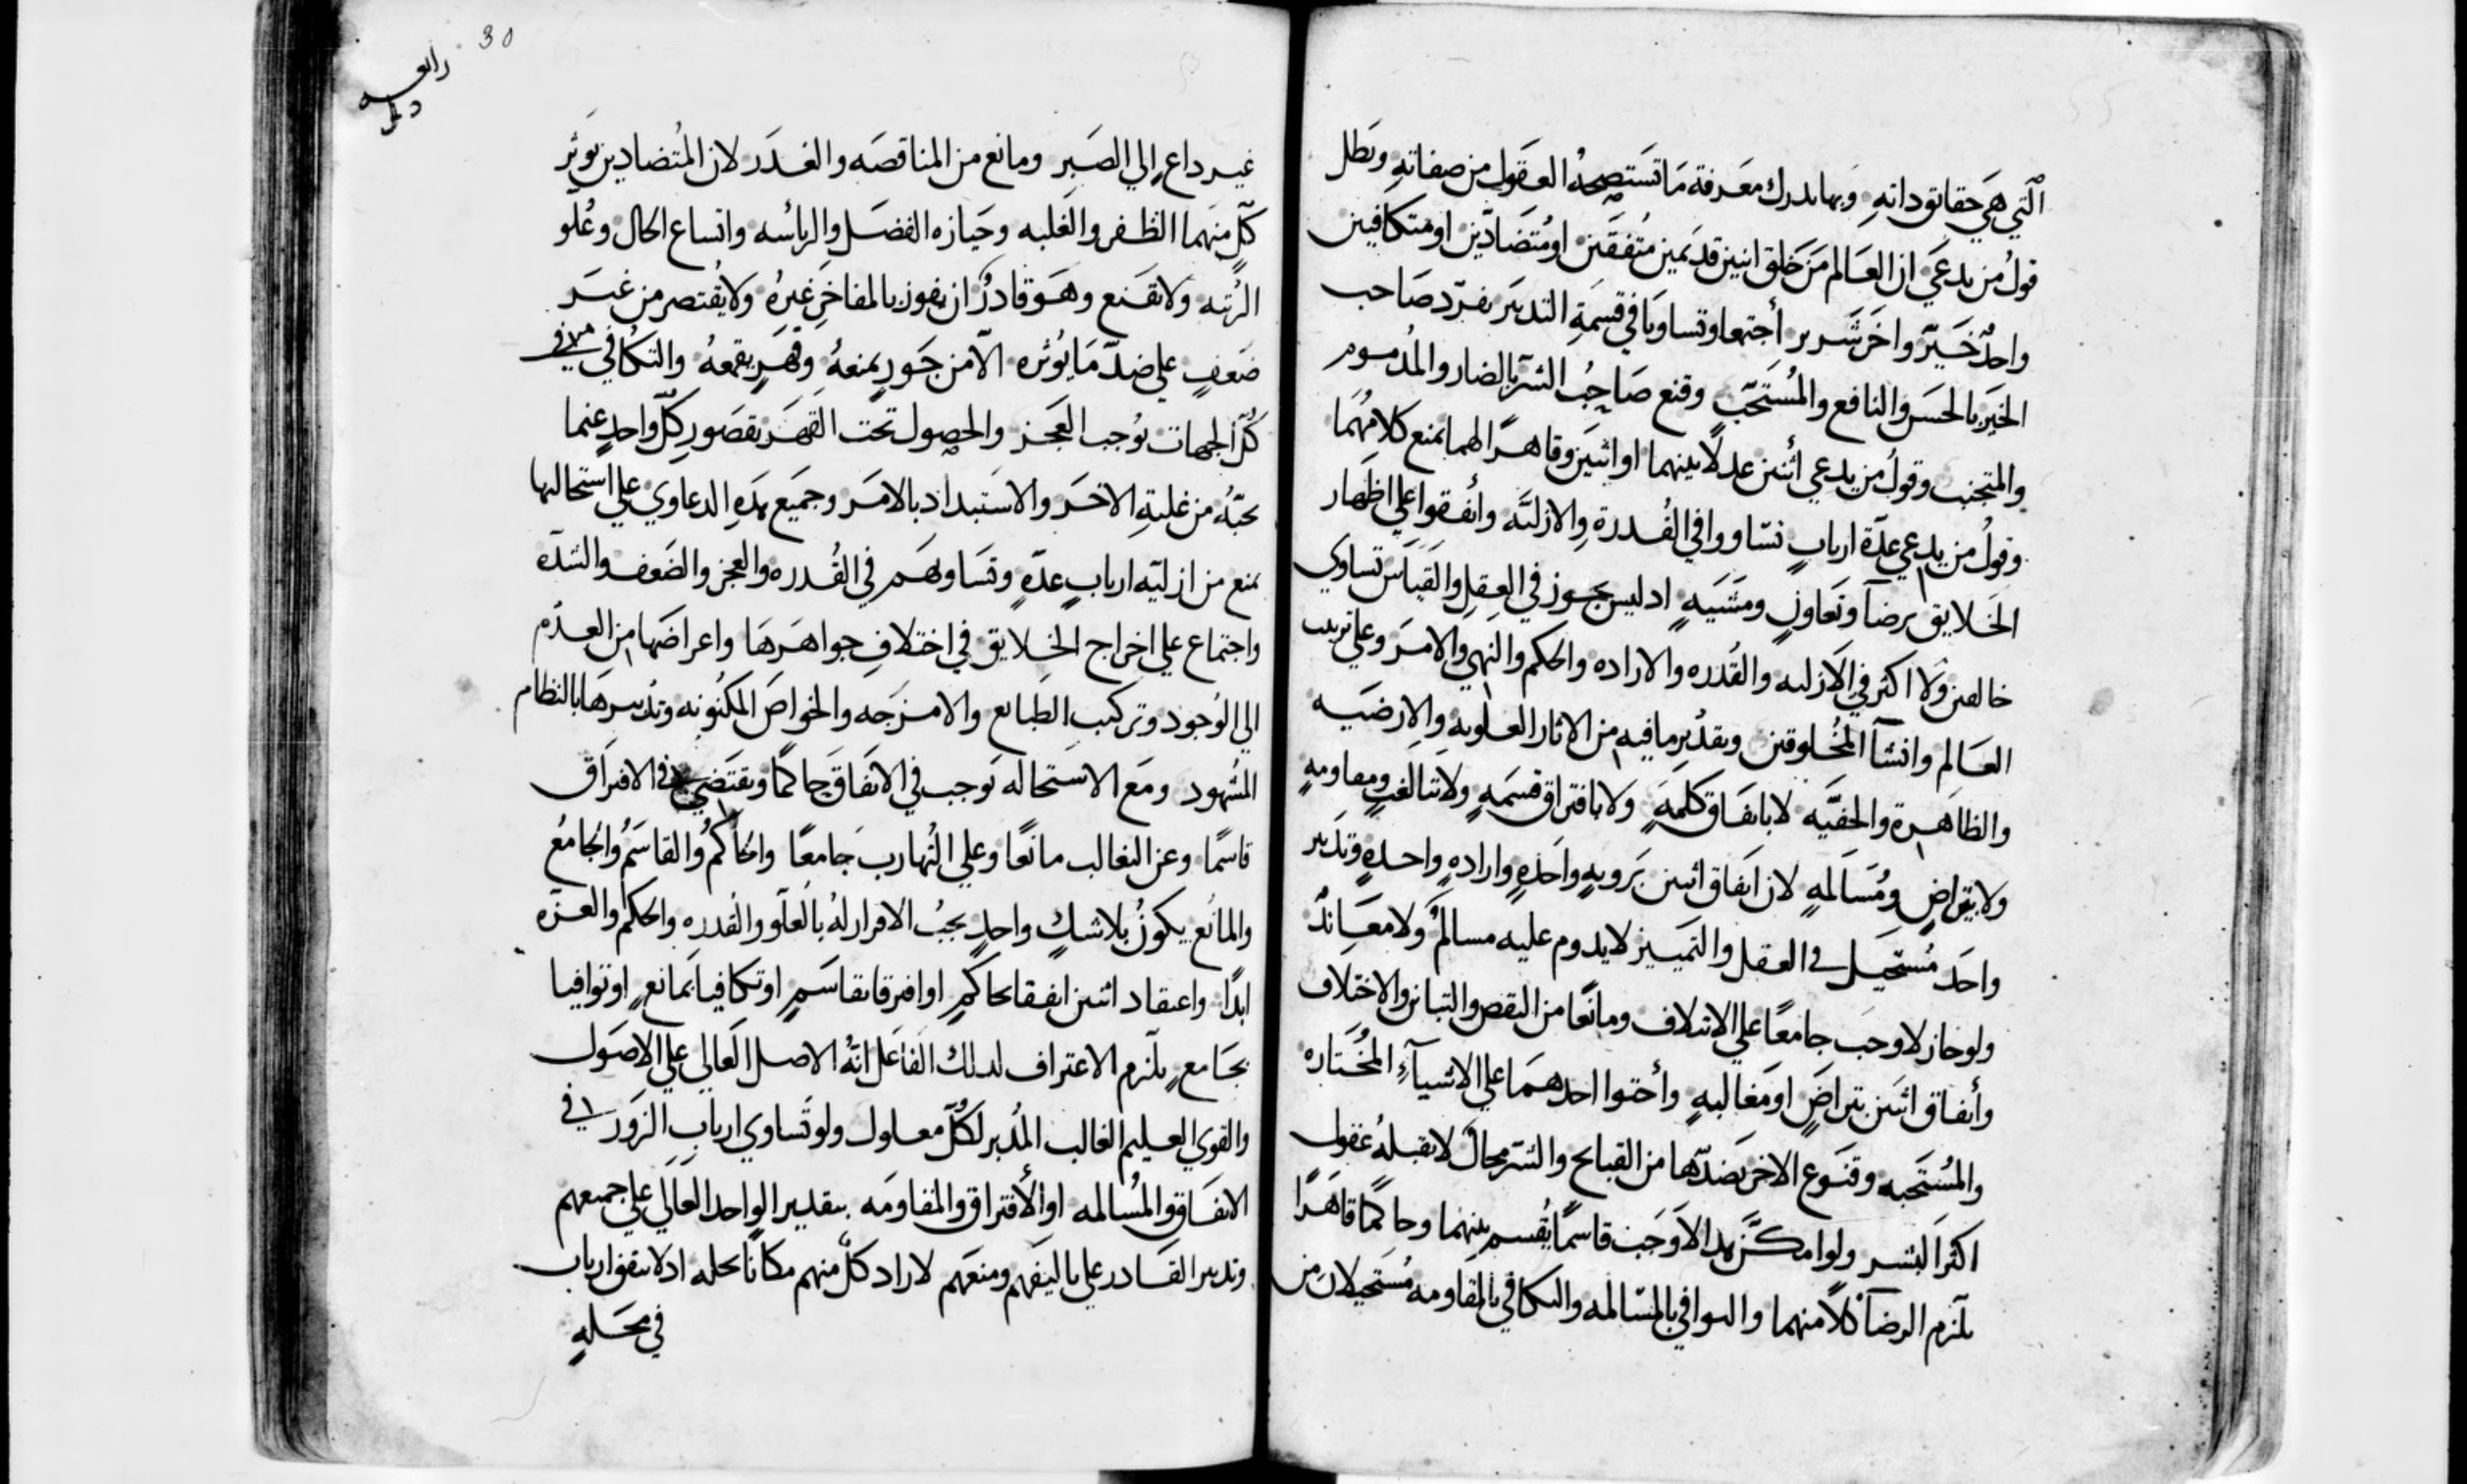 التي هي حقايق داته وبها يدرك معرفة ما تستصحه العقول من صفاته وبطل
قول من يدعي ان العالم من خلق اثنين قديمين متفقين او متضادين او متكافين
واحد خير واخر شرير أجتمعا وتساويا في قسمة التدبير بفرد صاحب
الخير بالحسن والنافع والمستحب وقنع صاحب الشر بالضار والمدموم
والمتجنب وقول من يدعي أثنين عدلا بينهما او اثنين وقاهرا لهما يمنع كلا منهما
وقول من يدعي عدة ارباب تساووا في القدرة والازلية وأتفقوا علي اظهار
الخلايق برضا وتعاون ومشية اد ليس يجوز في العقل والقياس تساوي
خالقين ولا اكثر في الازليه والقدره والاراده والحكم والنهي والامر وعلي ترتيب
العالم وانشا المخلوقين وبقدير ما فيه من الاثار العلويه والارضيه
والظاهرة والخفيه لا باتفاق كلمة ولا بافتراق قسمة ولا بتالغب ومقاومة
ولا بتراض ومسالمة لان اتفاق اثنين بروية واحدة واراده واحدة وتدبير
واحد مستحيل في العقل والتمييز لا يدوم عليه مسالم ولا معاند
ولو جاز لاوجب جامعا علي الايتلاف ومانعا من النقص والتباين والاختلاف
وأتفاق اثنين بتراض او مغالبة وأحتوا احدهما علي الاشيآء المختاره
والمستحبه وقنوع الاخر بضدها من القبايح والشر محال لا تقبله عقول
اكثر البشر ولو امكن هدا لاوجب قاسما يقسم بينهما وحاكما قاهرا
يلزم الرضا كلا منهما والتوافي بالمسالمه والتكافي بالمقاومه مستحيلان من
30
غير داع إلي الصبر ومانع من المناقصه والغدر لان المتضادين يوثر
كل منهما الظفر والغلبه وحيازه الفضل والرياسه واتساع الحال وعلو
الرتبه ولا يقنع وهو قادر ان يفوز بالمفاخر غيره ولا يقتصر من غير
ضعف علي ضد ما يوثره الا من جور يمنعه وقهر يقمعه والتكافي في
كل الجهات يوجب العجز والحصول تحت القهر بقصور كل واحد عنما
يحبه من غلبة الاخر والاستبداد بالامر وجميع هده الدعاوي علي استحالتها
يمنع من ازليه ارباب عدة وتساويهم في القدره والعجز والضعف والشده
واجتماع علي اخراج الخلايق في اختلاف جواهرها واعراضها من العدم
الي الوجود وتركيب الطبايع والامزجه والخواص المكنونه وتدبيرها بالنظام
المشهود ومع الاستحاله يوجب في الاتفاق حاكما ويقتضي في الافتراق
قاسما وعن التغالب مانعا وعلي التهارب جامعا والحاكم والقاسم والجامع
والمانع يكون بلا شك واحد يجب الاقرار له بالعلو والقدره والحكم والعزه
ابدا واعتقاد اثنين اتفقا بحاكم او افترقا بقاسم او تكافيا بمانع او توافيا
بجامع يلزم الاعتراف لدلك الفاعل انه الاصل العالي علي الاصول
والقوي العليم الغالب المدبر لكل معلول ولو تساوي ارباب الزور في
الاتفاق والمسالمه او الأفتراق والمقاومه بتقدير الواحد العالي علي جميعهم
وتدبير القادر علي تاليفهم ومنعهم لاراد كل منهم مكانا يحله اد لا يتفق ارباب
في محله